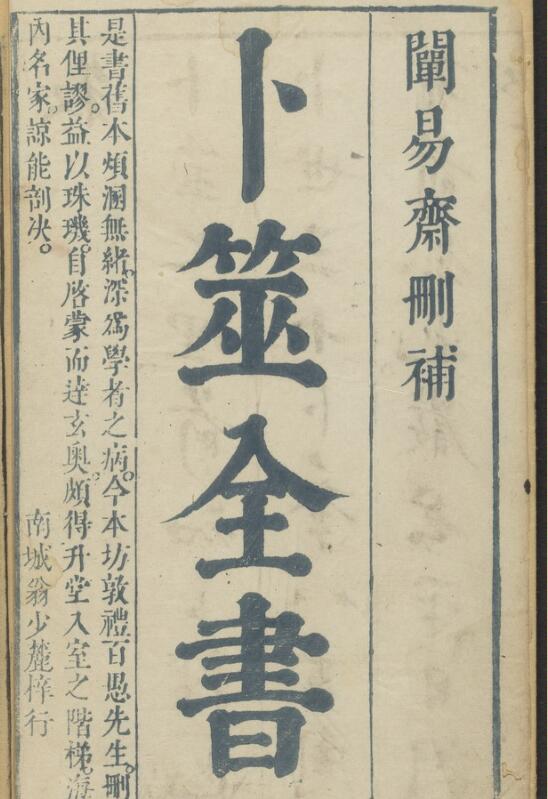 闡易齋刪補
卜筮全書
是書舊本煩溷無緒。深爲學者之病。今本坊敦禮百愚先生。刪
其俚謬。益以珠璣。自啓蒙而達玄奧。頗得升堂入室之階梯。海
內名家。諒能剖决。
南城翁少麓梓行